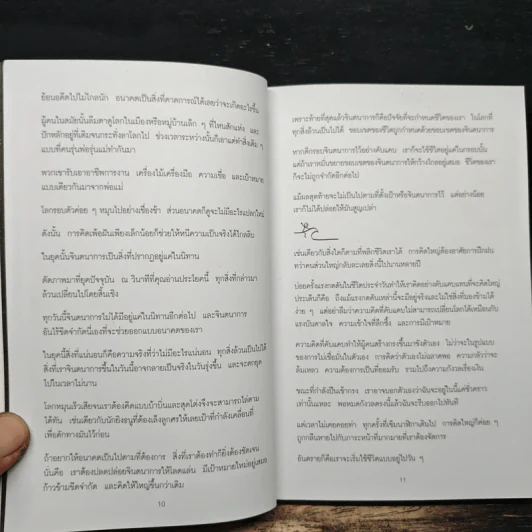 ย้อนอดีตไปไม่ไกลนัก อนาคตเป็นสิ่งที่คาดการณ์ได้เลยว่าจะเกิดอะไรขึ้น
ผู้คนในสมัยนั้นลืมตาดูโลกในเมืองหรือหมู่บ้านเล็ก ๆ ที่ไหนสักแห่ง และ
ปักหลักอยู่ที่เดิมจนกระทั่งลาโลกไป ช่วงเวลาระหว่างนั้นก็เอาแต่ทำสิ่งเดิม ๆ
แบบที่คนรุ่นพ่อรุ่นแม่ทำกันมา
พวกเขารับเอาอาชีพการงาน เครื่องไม้เครื่องมือ ความเชื่อ และเป้าหมาย
แบบเดียวกันมาจากพ่อแม่
โลกรอบตัวค่อย ๆ หมุนไปอย่างเชื่องช้า ส่วนอนาคตก็ดูจะไม่มีอะไรแปลกใหม่
ดังนั้น การคิดเพ้อฝันเพียงเล็กน้อยก็ช่วยให้หนีความเป็นจริงได้ไกลลิบ
ในยุคนั้นจินตนาการเป็นสิ่งที่ปรากฏอยู่แค่ในนิทาน
ตัดภาพมาที่ยุคปัจจุบัน ณ วินาทีที่คุณอ่านประโยคนี้ ทุก สิ่งที่กล่าวมา
ล้วนเปลี่ยนไปโดยสิ้นเชิง
ทุกวันนี้จินตนาการไม่ได้มีอยู่แค่ในนิทานอีกต่อไป และจินตนาการ
อันไร้ขีดจำกัดนี่เองที่จะช่วยออกแบบอนาคตของเรา
ในยุคนี้สิ่งที่แน่นอนก็คือความจริงที่ว่าไม่มีอะไรแน่นอน ทุกสิ่งล้วนเป็นไปได้
สิ่งที่เราจินตนาการขึ้นในวันนี้อาจกลายเป็นจริงในวันรุ่งขึ้น และจะตกยุค
ไปในเวลาไม่นาน
โลกหมุนเร็วเสียจนเราต้องคิดแบบบ้าบิ่นและสุดโต่งจึงจะสามารถไล่ตาม
ได้ทัน เช่นเดียวกับนักยิงธนูที่ต้องเล็งลูกศรให้เลยเป้าที่กำลังเคลื่อนที่
เพื่อดักทางมันไว้ก่อน
ถ้าอยากให้อนาคตเป็นไปตามที่ต้องการ สิ่งที่เราต้องทำก็ยิ่งต้องชัดเจน
นั่นคือ เราต้องปลดปล่อยจินตนาการให้โลดแล่น มีเป้าหมายใหม่อยู่เสมอ
ก้าวข้ามขีดจำกัด และคิดให้ใหญ่ขึ้นกว่าเดิม
10
เพราะท้ายที่สุดแล้วจินตนาการก็คือปัจจัยที่จะกำหนดชีวิตของเรา ในโลกที่
ทุกสิ่งล้วนเป็นไปได้ ขอบเขตของชีวิตถูกกำหนดด้วยขอบเขตของจินตนาการ
หากตีกรอบจินตนาการไว้อย่างคับแคบ เราก็จะใช้ชีวิตอยู่แค่ในกรอบนั้น
แต่ถ้าเราหมั่นขยายขอบเขตของจินตนาการให้กว้างไกลอยู่เสมอ ชีวิตของเรา
ก็จะไม่ถูกจำกัดอีกต่อไป
แม้ผลสุดท้ายจะไม่เป็นไปตามที่ตั้งเป้าหรือจินตนาการไว้ แต่อย่างน้อย
เราก็ไม่ได้ปล่อยให้มันสูญเปล่า
เช่นเดียวกับสิ่งใดก็ตามที่พลิกชีวิตเราได้ การคิดใหญ่ต้องอาศัยการฝึกฝน
ทว่าคนส่วนใหญ่กลับละเลยสิ่งนี้ไปนานหลายปี
บ่อยครั้งแรงกดดันในชีวิตประจำวันทำให้เราคิดอย่างคับแคบแทนที่จะคิดใหญ่
ประเด็นก็คือ ถึงแม้แรงกดดันเหล่านี้จะมีอยู่จริงและไม่ใช่สิ่งที่มองข้ามได้
ง่าย ๆ แต่อย่าลืมว่าความคิดที่คับแคบไม่สามารถเปลี่ยนโลกได้เหมือนกับ
แรงบันดาลใจ ความเข้าใจที่ลึกซึ้ง และการมีเป้าหมาย
ความคิดที่คับแคบทำให้ผู้คนสร้างกรงขึ้นมาขังตัวเอง ไม่ว่าจะในรูปแบบ
ของการไม่เชื่อมั่นในตัวเอง การคิดว่าตัวเองไม่ฉลาดพอ ความกลัวว่าจะ
ล้มเหลว ความต้องการเป็นที่ยอมรับ รวมไปถึงความกังวลเรื่องเงิน
ขณะที่กำลังปีนเข้ากรง เราอาจบอกตัวเองว่าฉันจะอยู่ในนี้แค่ชั่วคราว
เท่านั้นแหละ พอหมดกังวลตรงนี้แล้วฉันจะรีบออกไปทันที
แต่เวลาไม่เคยคอยท่า ทุกครั้งที่เข็มนาฬิกาเดินไป การคิดใหญ่ก็ค่อย ๆ
ถูกกลืนหายไปกับภาระหน้าที่มากมายที่เราต้องจัดการ
อันตรายก็คือเราจะเริ่มใช้ชีวิตแบบอยู่ไปวัน ๆ
11